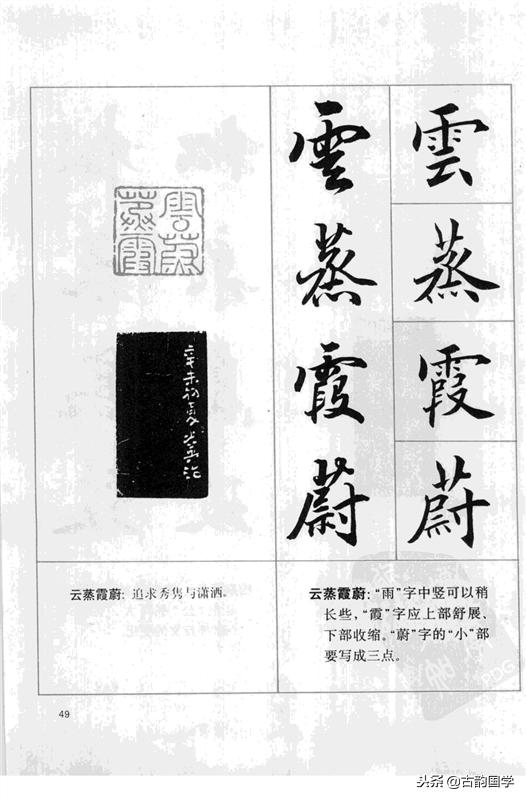 雲蒸霞蔚
雲蒸霞蔚
辛未初夏
云蒸霞蔚：追求秀隽与潇洒。
云蒸霞蔚：“雨”字中竖可以稍
长些，“霞”字应上部舒展、
下部收缩。“蔚”字的“小”部
要写成三点。
49
PDG
头条 @古韵国学